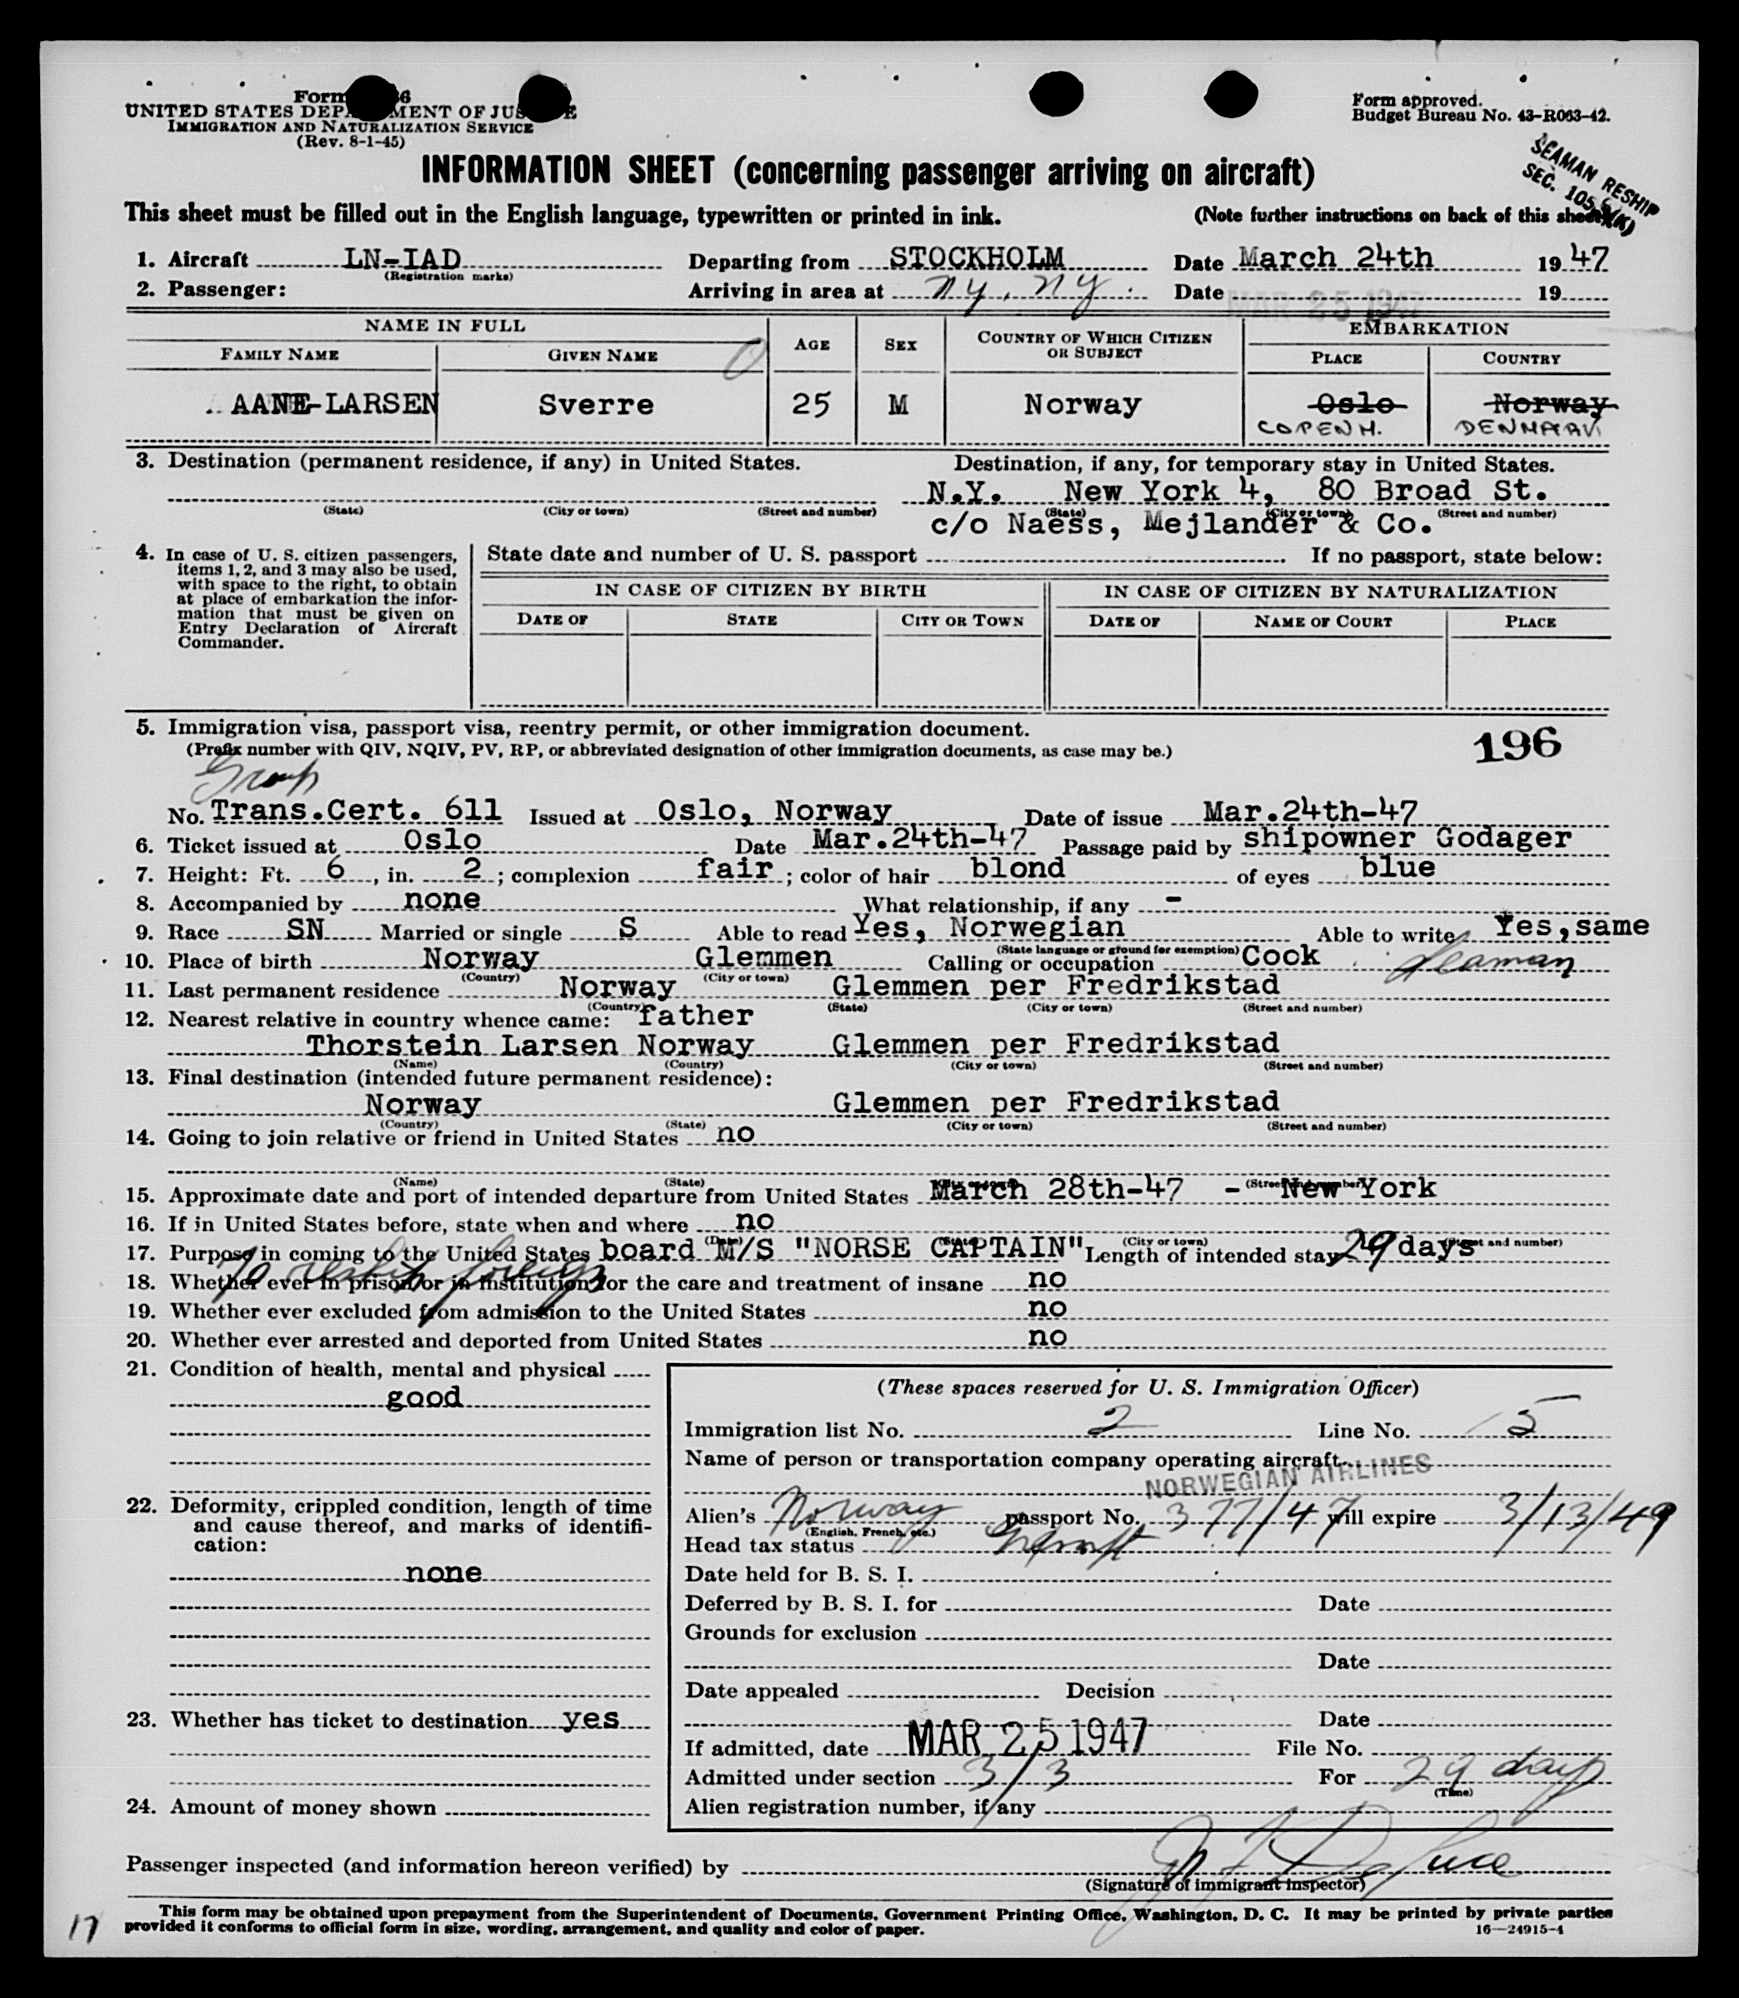 Form 6
UNITED STATES DEPARTMENT OF JUSTICE
IMMIGRATION AND NATURALIZATION SERVICE
(Rev. 8-1-45)
Form approved.
Budget Bureau No. 43-R063-42.
SEAMAN RESHIP
SEC. 105.
INFORMATION SHEET (concerning passenger arriving on aircraft)
This sheet must be filled out in the English language, typewritten or printed in ink. (Note further instructions on back of this sheet)
1. Aircraft LN-IAD Departing from STOCKHOLM Date March 24th 1947
(Registration marks)
2. Passenger: Arriving in area at NY, NY. Date MAR 25 1947 19
NAME IN FULL AGE SEX COUNTRY OF WHICH CITIZEN OR SUBJECT EMBARKATION
FAMILY NAME GIVEN NAME PLACE COUNTRY
AANE-LARSEN Sverre 25 M Norway Oslo Norway
COPENH. DENMARK
3. Destination (permanent residence, if any) in United States. Destination, if any, for temporary stay in United States.
N.Y. New York 4, 80 Broad St.
(State) (City or town) (Street and number) (State) (City or town) (Street and number)
c/o Naess, Mejlander & Co.
4. In case of U. S. citizen passengers, items 1, 2, and 3 may also be used, with space to the right, to obtain at place of embarkation the information that must be given on Entry Declaration of Aircraft Commander.
State date and number of U. S. passport If no passport, state below:
IN CASE OF CITIZEN BY BIRTH IN CASE OF CITIZEN BY NATURALIZATION
DATE OF STATE CITY OR TOWN DATE OF NAME OF COURT PLACE
5. Immigration visa, passport visa, reentry permit, or other immigration document.
(Prefix number with QIV, NQIV, PV, RP, or abbreviated designation of other immigration documents, as case may be.)
196
Group
No. Trans.Cert. 611 Issued at Oslo, Norway Date of issue Mar.24th-47
6. Ticket issued at Oslo Date Mar.24th-47 Passage paid by shipowner Godager
7. Height: Ft. 6, in. 2; complexion fair; color of hair blond of eyes blue
8. Accompanied by none What relationship, if any -
9. Race SN Married or single S Able to read Yes, Norwegian Able to write Yes,same
(State language or ground for exemption)
10. Place of birth Norway Glemmen Calling or occupation Cook Seaman
(Country) (City or town)
11. Last permanent residence Norway Glemmen per Fredrikstad
(Country) (State) (City or town) (Street and number)
12. Nearest relative in country whence came: father
Thorstein Larsen Norway Glemmen per Fredrikstad
(Name) (Country) (City or town) (Street and number)
13. Final destination (intended future permanent residence):
Norway Glemmen per Fredrikstad
(Country) (State) (City or town) (Street and number)
14. Going to join relative or friend in United States no
(Name) (State) (Street and number)
15. Approximate date and port of intended departure from United States March 28th-47 - New York
16. If in United States before, state when and where no
(Date) (State) (City or town) (Street and number)
17. Purpose in coming to the United States board M/S "NORSE CAPTAIN" Length of intended stay 29 days
To reship foreign
18. Whether ever in prison or in institution for the care and treatment of insane no
19. Whether ever excluded from admission to the United States no
20. Whether ever arrested and deported from United States no
21. Condition of health, mental and physical
good
22. Deformity, crippled condition, length of time and cause thereof, and marks of identification:
none
23. Whether has ticket to destination yes
24. Amount of money shown
(These spaces reserved for U. S. Immigration Officer)
Immigration list No. 2 Line No. 5
Name of person or transportation company operating aircraft
NORWEGIAN AIRLINES
Alien's Norway passport No. 377/47 will expire 3/13/49
(English, French, etc.)
Head tax status
Date held for B. S. I.
Deferred by B. S. I. for Date
Grounds for exclusion
Date
Date appealed Decision
Date
If admitted, date MAR 25 1947 File No.
Admitted under section 3/3 For 29 days
(Time)
Alien registration number, if any
Passenger inspected (and information hereon verified) by
(Signature of immigrant inspector)
This form may be obtained upon prepayment from the Superintendent of Documents, Government Printing Office, Washington, D. C. It may be printed by private parties
provided it conforms to official form in size, wording, arrangement, and quality and color of paper. 16—24915-4
17